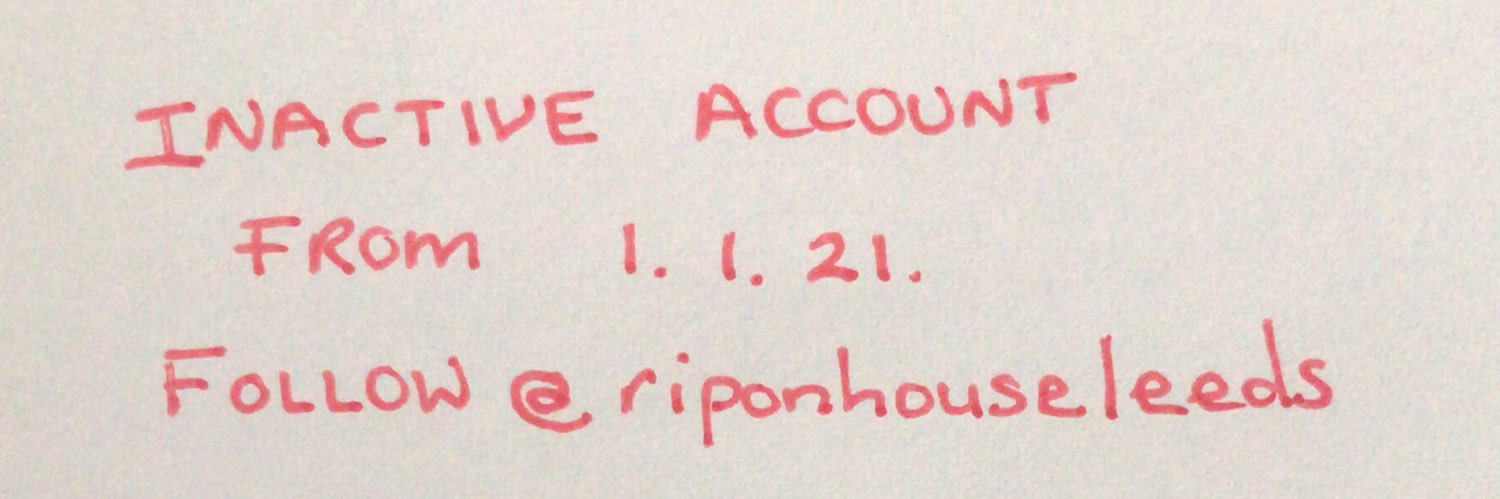 INACTIVE ACCOUNT
FROM 1.1.21.
FOLLOW @riponhouseleeds